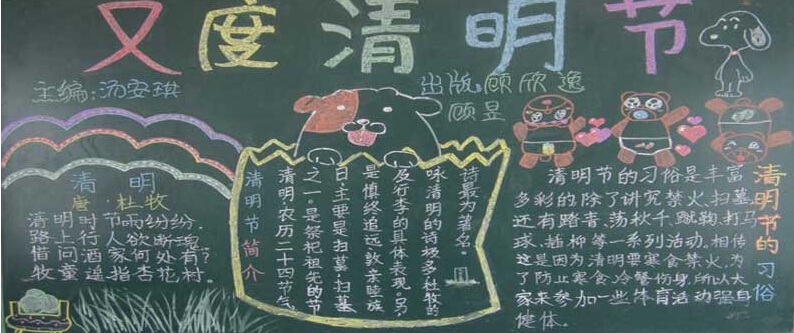 又度清明节
主编:汤安琪
出版 顾欣逸
顾昱
清明
唐·杜牧
清明时节雨纷纷,
路上行人欲断魂。
借问酒家何处有?
牧童遥指杏花村。
清明节简介
清明,农历二十四节气
之一。是祭祀祖先的节
日,主要是扫墓,扫墓
是慎终追远、敦亲睦族
及行李的具体表现。另
咏清明的诗极多,杜牧的
诗最为著名。
清明节的习俗
清明节的习俗是丰富
多彩的,除了讲究禁火、扫墓,
还有踏青、荡秋千、蹴鞠、打马
球、插柳等一系列活动。相传
这是因为清明要寒食禁火,为
了防止寒食冷餐伤身,所以大
家来参加一些体育活动强身
健体。